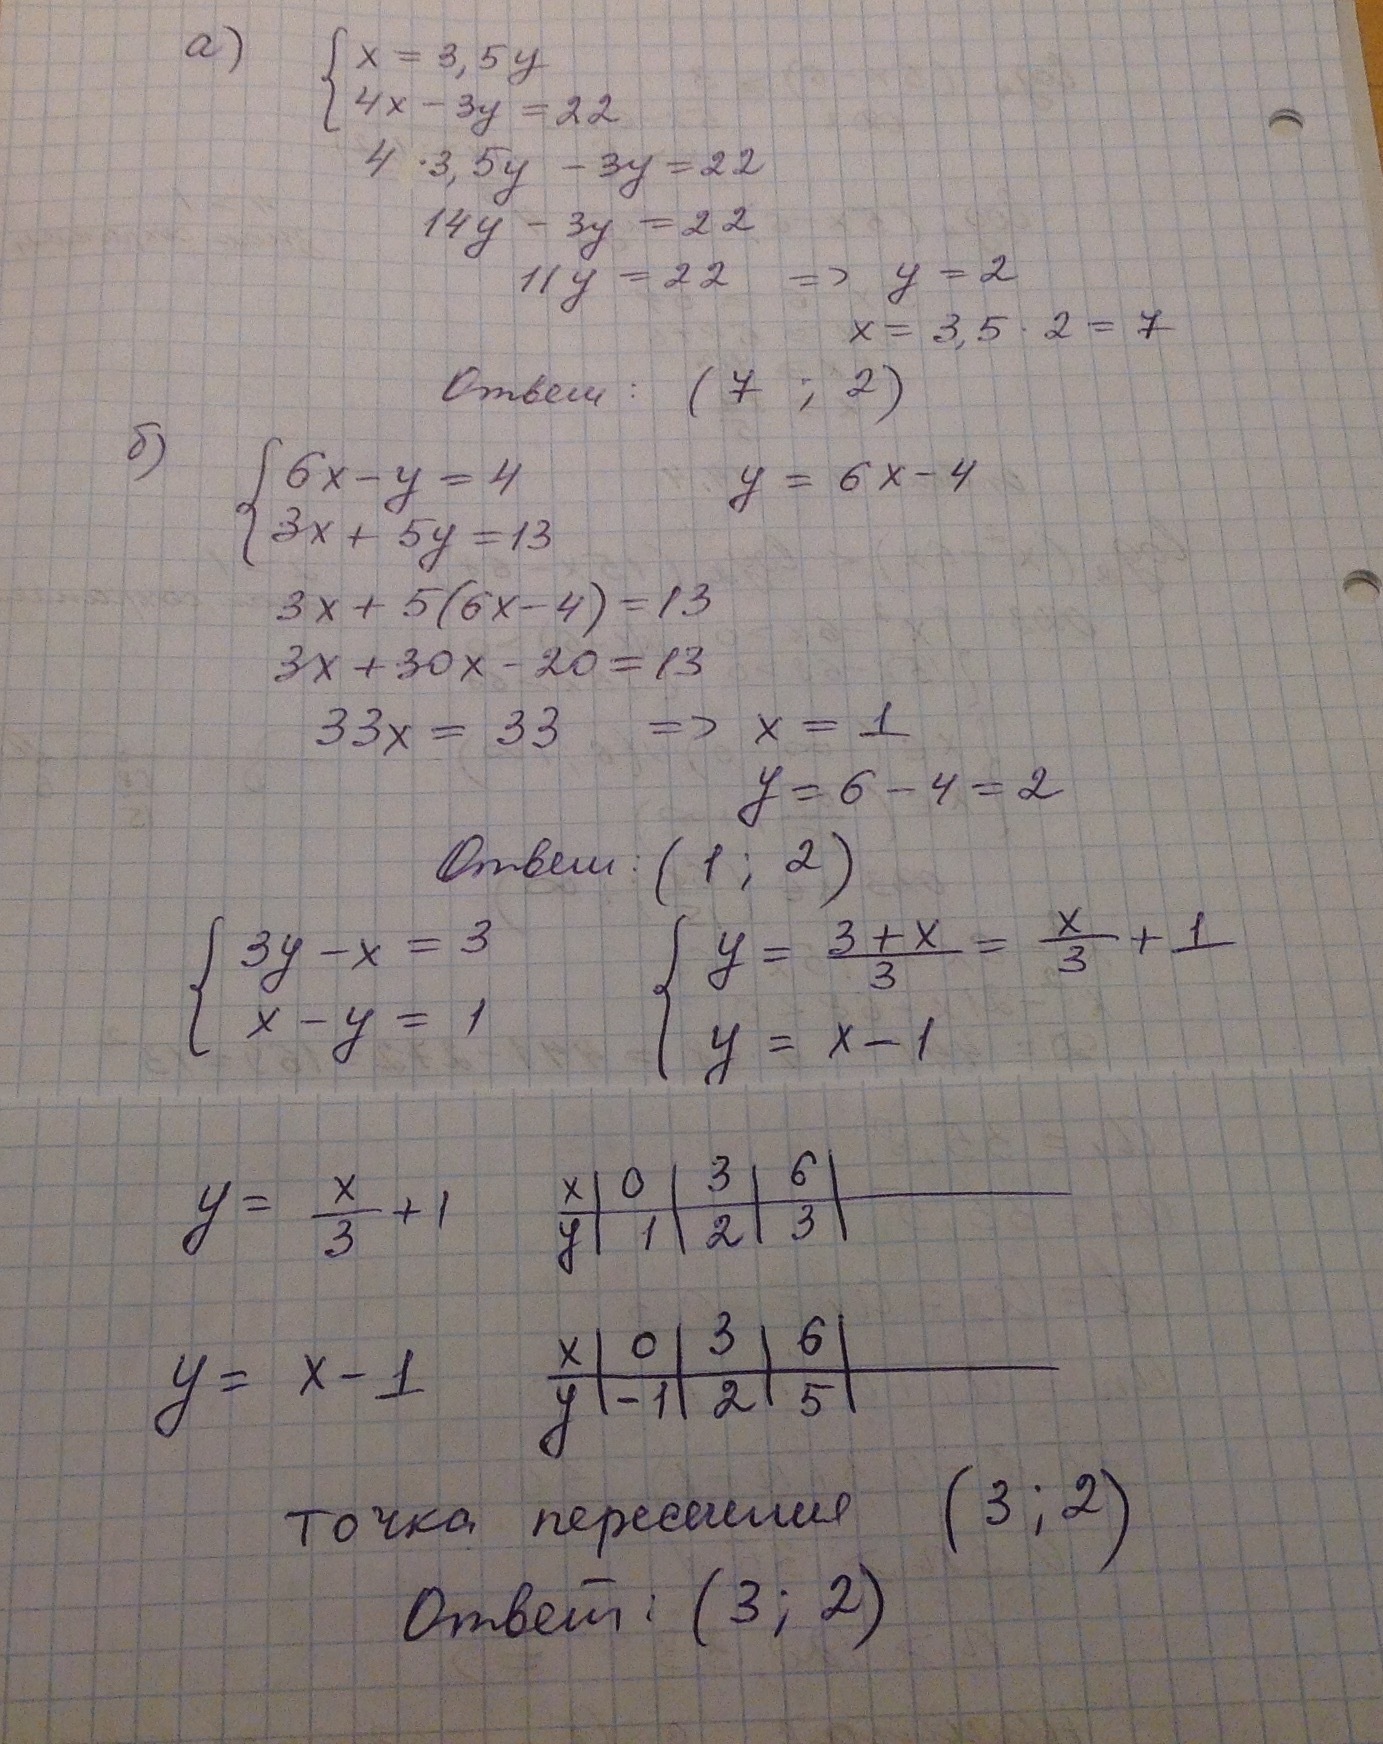 а) { x = 3,5y
4x - 3y = 22
4 · 3,5y - 3y = 22
14y - 3y = 22
11y = 22 => y = 2
x = 3,5 · 2 = 7
Ответ: (7 ; 2)
б) { 6x - y = 4 y = 6x - 4
3x + 5y = 13
3x + 5(6x - 4) = 13
3x + 30x - 20 = 13
33x = 33 => x = 1
y = 6 - 4 = 2
Ответ: (1 ; 2)
{ 3y - x = 3 { y = (3 + x)/3 = x/3 + 1
x - y = 1 y = x - 1
y = x/3 + 1
x | 0 | 3 | 6 |
y | 1 | 2 | 3 |
y = x - 1
x | 0 | 3 | 6 |
y | -1 | 2 | 5 |
точка пересечения (3 ; 2)
Ответ: (3 ; 2)